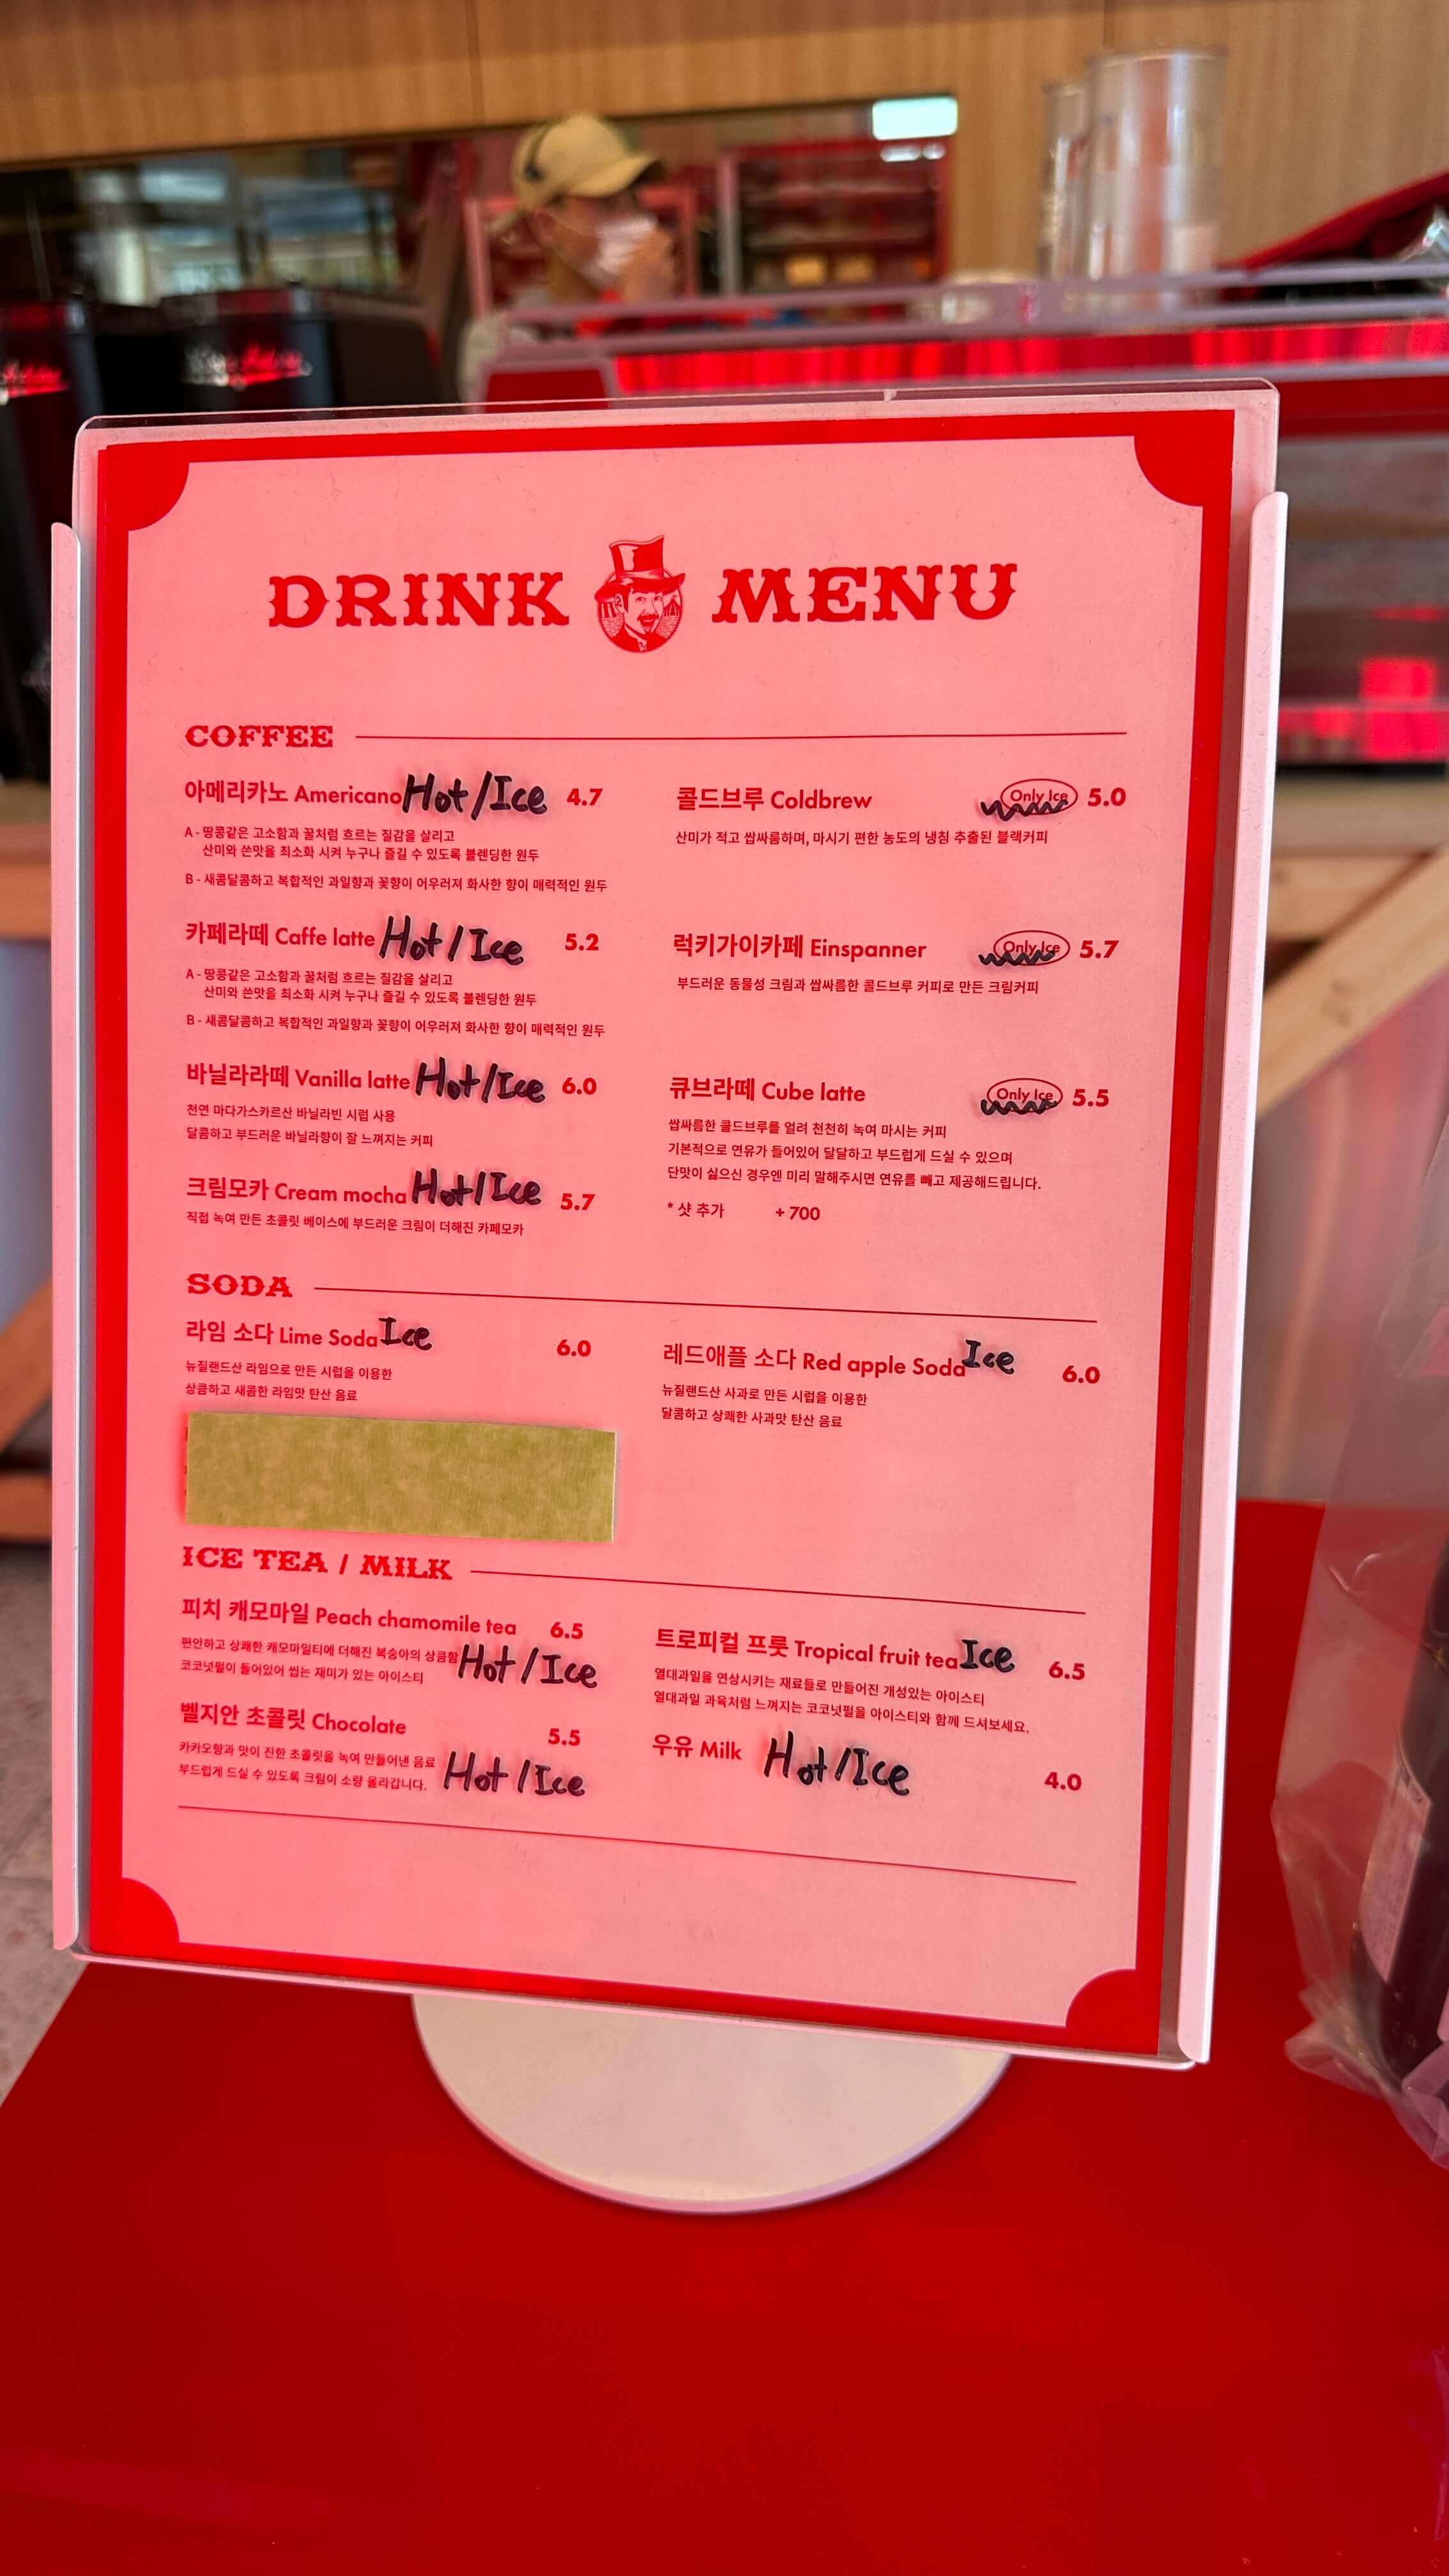 DRINK MENU
COFFEE
아메리카노 Americano Hot/Ice 4.7
A - 땅콩같은 고소함과 꿀처럼 흐르는 질감을 살리고
산미와 쓴맛을 최소화 시켜 누구나 즐길 수 있도록 블렌딩한 원두
B - 새콤달콤하고 복합적인 과일향과 꽃향이 어우러져 화사한 향이 매력적인 원두
카페라떼 Caffe latte Hot/Ice 5.2
A - 땅콩같은 고소함과 꿀처럼 흐르는 질감을 살리고
산미와 쓴맛을 최소화 시켜 누구나 즐길 수 있도록 블렌딩한 원두
B - 새콤달콤하고 복합적인 과일향과 꽃향이 어우러져 화사한 향이 매력적인 원두
바닐라라떼 Vanilla latte Hot/Ice 6.0
천연 마다가스카르산 바닐라빈 시럽 사용
달콤하고 부드러운 바닐라향이 잘 느껴지는 커피
크림모카 Cream mocha Hot/Ice 5.7
직접 녹여 만든 초콜릿 베이스에 부드러운 크림이 더해진 카페모카
콜드브루 Coldbrew Only Ice 5.0
산미가 적고 쌉싸름하며, 마시기 편한 농도의 냉침 추출된 블랙커피
럭키가이카페 Einspanner Only Ice 5.7
부드러운 동물성 크림과 쌉싸름한 콜드브루 커피로 만든 크림커피
큐브라떼 Cube latte Only Ice 5.5
쌉싸름한 콜드브루를 얼려 천천히 녹여 마시는 커피
기본적으로 연유가 들어있어 달달하고 부드럽게 드실 수 있으며
단맛이 싫으신 경우엔 미리 말해주시면 연유를 빼고 제공해드립니다.
* 샷 추가 + 700
SODA
라임 소다 Lime Soda Ice 6.0
뉴질랜드산 라임으로 만든 시럽을 이용한
상큼하고 새콤한 라임맛 탄산 음료
레드애플 소다 Red apple Soda Ice 6.0
뉴질랜드산 사과로 만든 시럽을 이용한
달콤하고 상쾌한 사과맛 탄산 음료
ICE TEA / MILK
피치 캐모마일 Peach chamomile tea 6.5
편안하고 상쾌한 캐모마일티에 더해진 복숭아의 상큼함
코코넛펄이 들어있어 씹는 재미가 있는 아이스티
Hot/Ice
벨지안 초콜릿 Chocolate 5.5
카카오향과 맛이 진한 초콜릿을 녹여 만들어낸 음료
부드럽게 드실 수 있도록 크림이 소량 올라갑니다.
Hot/Ice
트로피컬 프룻 Tropical fruit tea Ice 6.5
열대과일을 연상시키는 재료들로 만들어진 개성있는 아이스티
열대과일 과육처럼 느껴지는 코코넛펄을 아이스티와 함께 드셔보세요.
우유 Milk Hot/Ice 4.0